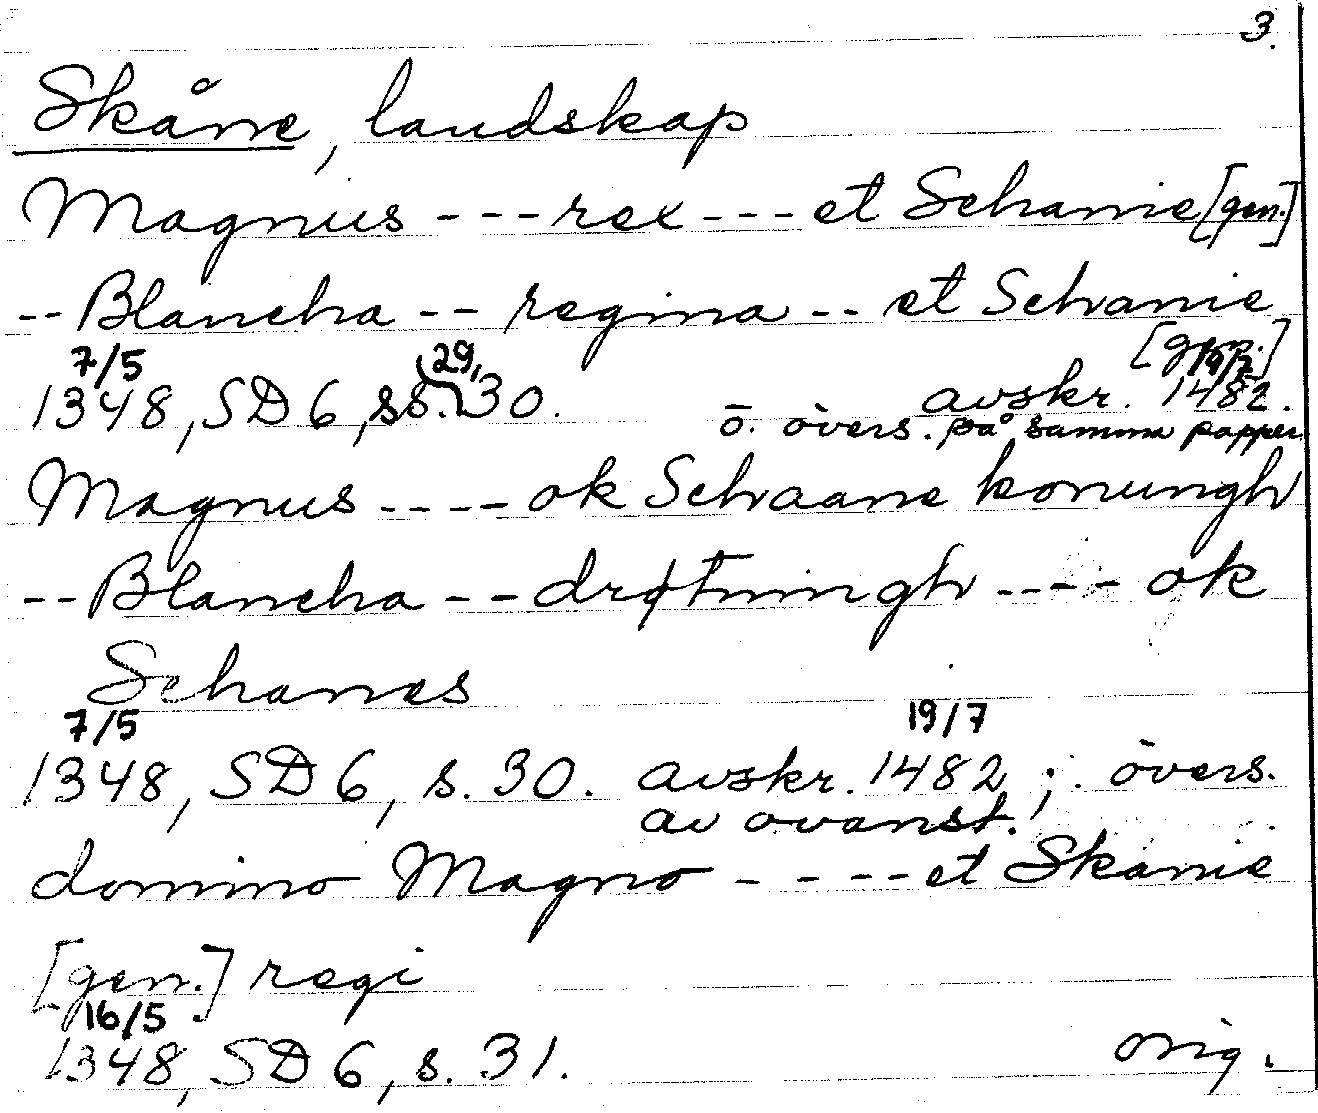 3.
Skåne, landskap
Magnus --- rex --- et Schanie [gen.]
-- Blancha -- regina -- et Schanie
[gen.]
7/5 29, 19/7
1348, SD 6, ss. 30. avskr. 1482.
o. övers. på samma papper
Magnus ---- ok Schaane konungh
-- Blancha -- drøtningh ---- ok
Schanes
7/5 19/7
1348, SD 6, s. 30. avskr. 1482; övers.
av ovanst.
domino Magno ---- et Skanie
[gen.] regi
16/5
1348, SD 6, s. 31. orig.